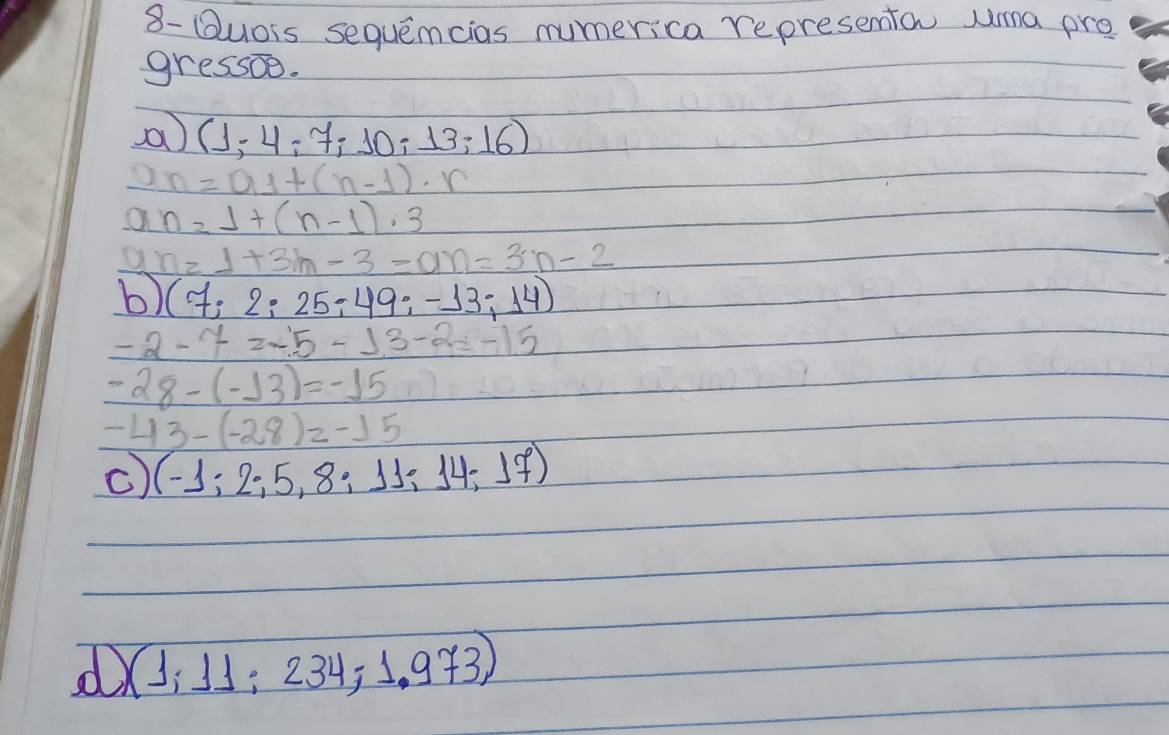 8-Quais sequências numerica representa uma pro
gressão.
a) (1; 4; 7; 10; 13; 16)
an = a1 + (n-1) . r
an = 1 + (n-1) . 3
an = 1 + 3n - 3 = an = 3n - 2
b) (7; 2; 25; 49; -13; 14)
-2 - 7 = -5 - 13 - 2 = -15
-28 - (-13) = -15
-43 - (-28) = -15
c) (-1; 2; 5, 8; 11; 14; 17)
d) (1; 11; 234; 1.973)